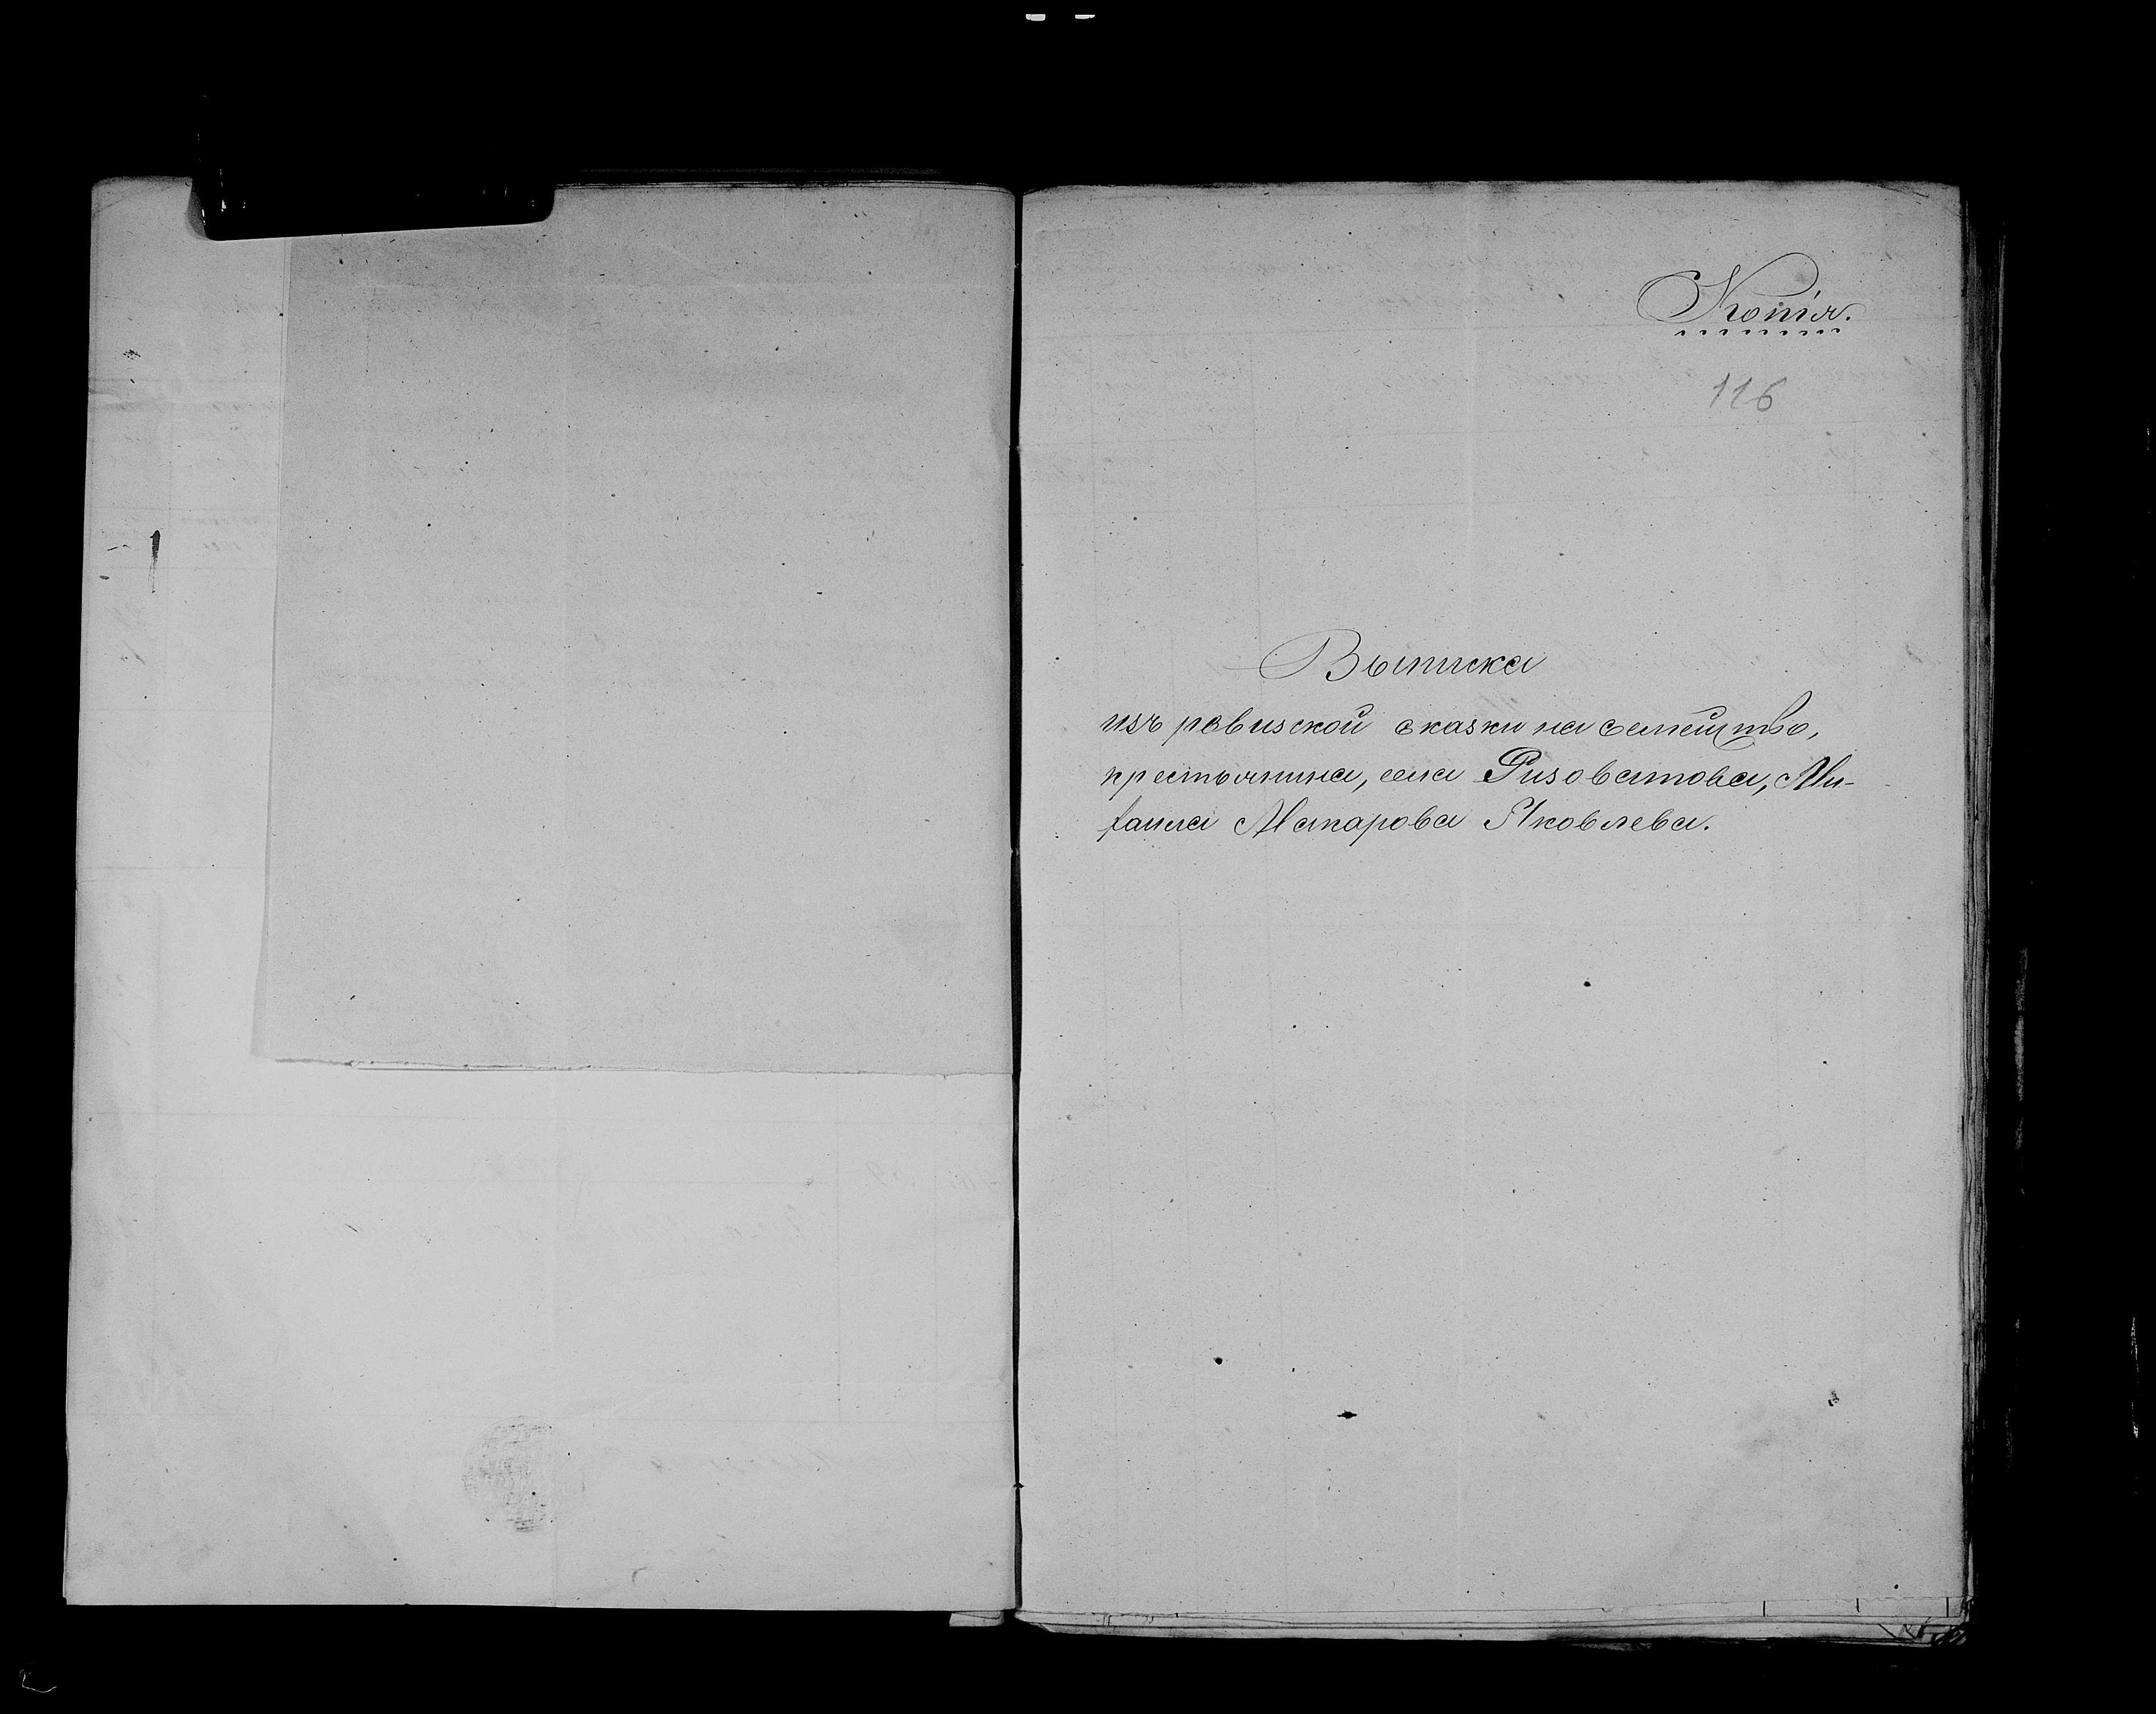 Копія.
116
Выписка
изъ ревизской сказки на семейство,
крестьянина, села Ризоватова, Ми-
хаила Макарова Яковлева.